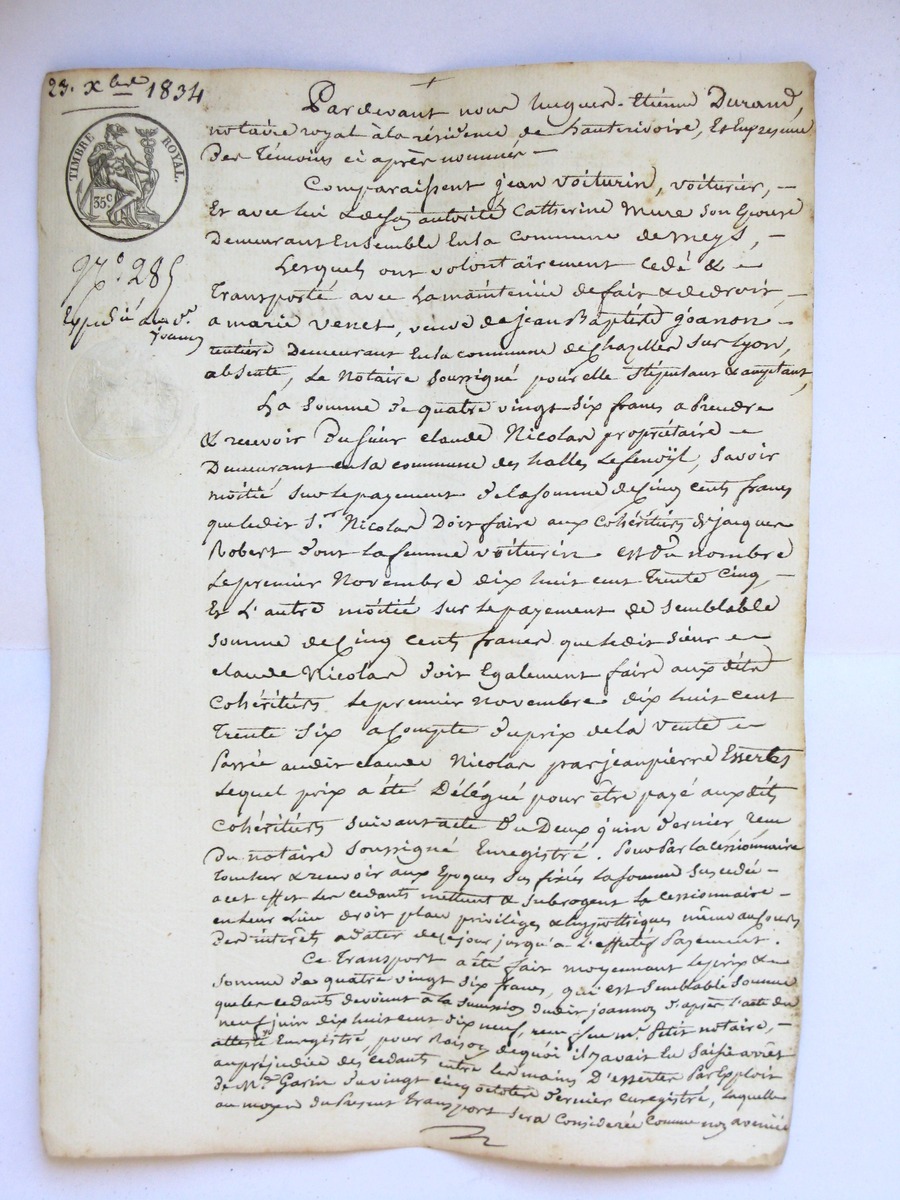 23. Xbre 1834
TIMBRE ROYAL.
35 c
N.° 285
Expédié à la d.e
Par devant nous hugues-Etiênne Durand,
notaire royal à la résidence de hauterivoire, Et En presence
Des Témoins ci après nommés -
Comparaissent jean Voiturin, voiturier, -
Et avec lui & de son autorité Catherine Mure son Epouse
Demeurant Ensemble En la Commune de meys, -
Lesquels ont volontairement cedé & -
Transporté avec la maintenüe de fait & de droit, -
a marie Venet, veuve de jean Baptiste joanon -
rentière Demeurant En la commune de Chazelles sur Lyon,
absente, Le Notaire soussigné pour elle stipulant & acceptant,
La Somme de quatre vingt-six francs a Prendre
& recevoir Du sieur claude Nicolas propriétaire -
Demeurant en la commune des halles Le fenoÿl, savoir
moitié sur le payement de la somme de Cinq cents francs
que ledit S.r Nicolas Doit faire aux cohéritiers de jacques
Robert dont la femme voiturin est du nombre
Le premier Novembre dix huit cent Trente Cinq, -
Et L'autre moitié sur le payement de semblable
somme de Cinq cents francs que ledit sieur -
claude Nicolas doit Egalement faire aux dits
Cohéritiers Le premier novembre dix huit cent
Trente Six a Compte du prix de la Vente -
Passée audit claude Nicolas par jean pierre Essertes
Lequel prix a été Délégué pour être payé aux dits
Cohéritiers suivant acte du Deux juin dernier reçu
Du notaire Soussigné Enregistré. Pour Par la cessionnaire
Toucher & recevoir aux Epoques sus fixées la somme sus cedée -
a cet effet Les cedants mettent & subrogent la cessionnaire -
en leur Lieu droit place privilèges & hypothèques même au cours
Des intérêts a dater de ce jour jusqu'a L'effectif Payement.
Ce Transport a été fait moyennant le prix & -
somme de quatre vingt six francs, qui est semblable somme
que les cedants devoient à la succession dudit joannon d'après l'acte du
neuf juin dix huit cent dix neuf, reçu feu m.e Petit notaire, -
Enregistré, pour Raison de quoi il y avait Eu saisie arrêt
au préjudice des cedants entre les mains D'essertes Par Exploit
de M.e Garin du vingt cinq octobre dernier enregistré, laquelle
au moyen du Present Transport sera Considerée Comme non avenüe